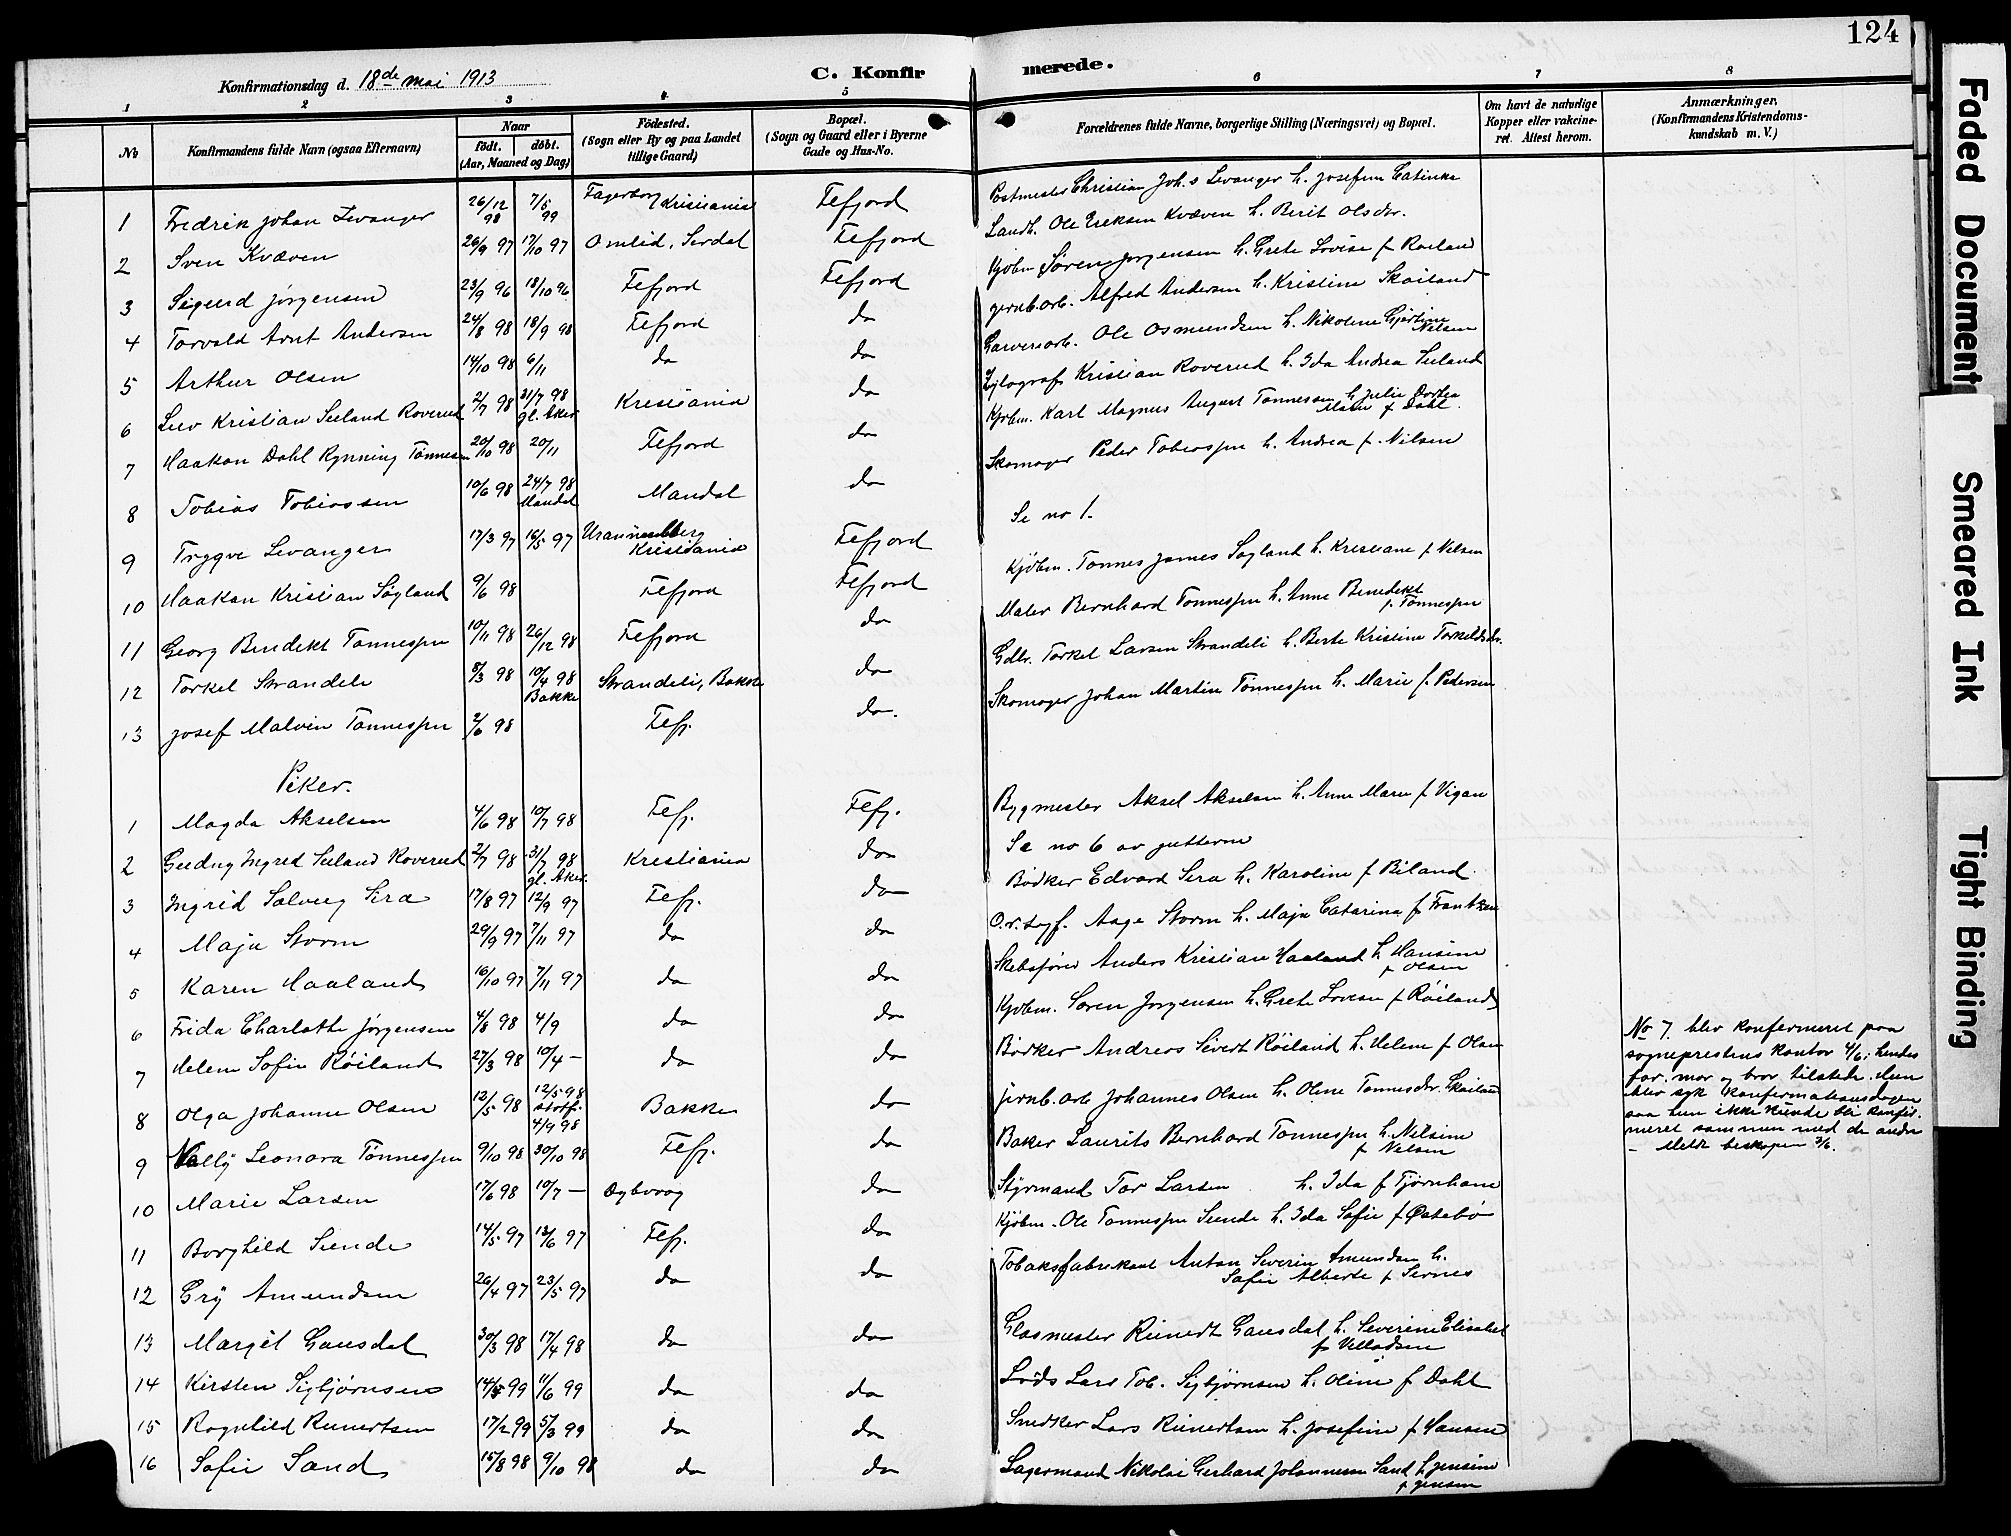 124
Konfirmationsdag d. 18de mai 1913
C. Konfirmerede.
1 2 3 4 5 6 7 8
No
Konfirmandens fulde Navn (ogsaa Efternavn)
Naar
født. døbt.
(Aar, Maaned og Dag)
Fødested.
(Sogn eller By og paa Landet
tillige Gaard)
Bopæl.
(Sogn og Gaard eller i Byerne
Gade og Hus-No.
Forældrenes fulde Navne, borgerlige Stilling (Næringsvei) og Bopæl.
Om havt de naturlige
Kopper eller vakcine-
ret. Attest herom.
Anmærkninger.
(Konfirmandens Kristendoms-
kundskab m. V.)
1 Fredrik Johan Levanger 26/12 98 7/5 99 Fagerborg Kristiania Flefjord Postmester Christian Joh.s Levanger h. Josefine Catinka
2 Sven Kvæven 26/9 97 17/10 97 Omlid, Sirdal Flefjord Landh. Ole Eriksen Kvæven h. Berit Olsdtr.
3 Sigurd Jørgensen 23/9 96 18/10 96 Flefjord Flefjord Kjøbm Søren Jørgensen h. Grete Lovise f Røiland
4 Torvald Arnt Andersen 24/8 98 18/9 98 Flefjord do jernb.arb. Alfred Andersen h. Kristine Skailand
5 Arthur Olsen 14/10 98 6/11 do do Garveriarb. Ole Osmundsen h. Nikoline Gjertine Nilsen
6 Leiv Kristian Seland Roverud 2/7 98 31/7 98 gl. Aker Kristiania do Xylograf Kristian Roverud h. Ida Andrea Seland
7 Haakon Dahl Rynning Tønnesen 20/10 98 20/11 Flefjord do Kjøbm. Karl Magnus August Tønnesen h. Julie Dorthea Marie f Dahl.
8 Tobias Tobiassen 10/6 98 24/7 98 Mandal Mandal do Skomager Peder Tobiassen h. Andrea f. Nilsen
9 Trygve Levanger 17/3 97 16/5 97 Uranienberg Kristiania Flefjord Se no 1.
10 Haakon Kristian Søyland 9/6 98 Flefjord Flefjord Kjøbm. Tønnes James Søyland h. Kristiane f Nelsen
11 Georg Bendikt Tønnessen 10/11 98 26/12 98 Flefjord do Maler Bernhard Tønnessen h. Anne Benedikt f. Tønnessen
12 Torkel Strandeli 5/3 98 10/4 98 Bakke Strandeli, Bakke do Gdbr. Torkel Larsen Strandeli h. Berte Kristine Torkeldsdtr.
13 Josef Malvin Tønnessen 2/6 98 Flefj. do. Skomager Johan Martin Tønnessen h. Marie f. Pedersen
Piker.
1 Magda Akselsen 4/6 98 10/7 98 Flefj. Flefj. Bygmester Aksel Akselsen h. Anne Marie f Vigan
2 Gudny Ingrid Seland Roverud 2/7 98 31/7 98 gl. Aker. Kristiania do Se no 6 av guttene
3 Ingrid Solveig Sira 17/8 97 12/9 97 Flefj. do Bødker Edvard Sira h. Karoline f Biland.
4 Maja Storm 29/9 97 7/11 97 do do O.r.sagf. Aage Storm h. Maja Catarina f Frantzen
5 Karen Haaland 16/10 97 7/11 97 do do Skibsfører Anders Kristian Haaland h. Hansine f Olsen
6 Frida Charlotte Jørgensen 4/8 98 4/9 do do Kjøbm. Søren Jørgensen h. Grete Lovise f Røiland
7 Helene Sofie Røiland 27/3 98 10/4 — do do Bødker Andreas Sivert Røiland h. Helene f Olsen
8 Olga Johanne Olsen 12/5 98 12/5 98 stadf. 4/9 98 Bakke do jernb. arb Johannes Olsen h. Oline Tønnesdtr. Skailand
9 Nelly Leonora Tønnessen 9/10 98 30/10 98 Flefj. do Baker Laurits Bernhard Tønnessen h. Nilsine f Nelsen
10 Marie Larsen 17/6 98 10/7 — Dybvaag do Styrmand Tor Larsen h. Ida f Tjørnhom
11 Borghild Sunde 14/5 97 13/6 97 Flefj. do Kjøbm. Ole Tønnessen Sunde h. Ida Sofie f Østebø
12 Gry Amundsen 26/4 97 23/5 97 do do Tobaksfabrikant Anton Severin Amundsen h. Sofie Alberte f Sernes
13 Margit Gausdal 30/3 98 17/4 98 do do Glasmester Reinert Gausdal h. Severine Elisabet f Villadsen
14 Kirsten Sigbjørnsen 14/5 99 11/6 99 do do Lods Lars Tob. Sigbjørnsen h. Oline f Dahl
15 Ragnhild Reinertsen 17/2 99 5/3 99 do do Snedker Lars Reinertsen h. Josefine f Hansen
16 Sofie Sand 15/8 98 9/10 98 do do Lagermand Nikolai Gerhard Johannesen Sand h. Jensine f Jensen
No 7. blev konfirmeret paa
sogneprestens kontor 4/6; hendes
far, mor og bror tilstede. Hun
blev syk konfirmationsdagen
saa hun ikke kunde bli konfir-
meret sammen med de andre
— Meldt biskopen 3/6.
Faded Document
Smeared Ink
Tight Binding